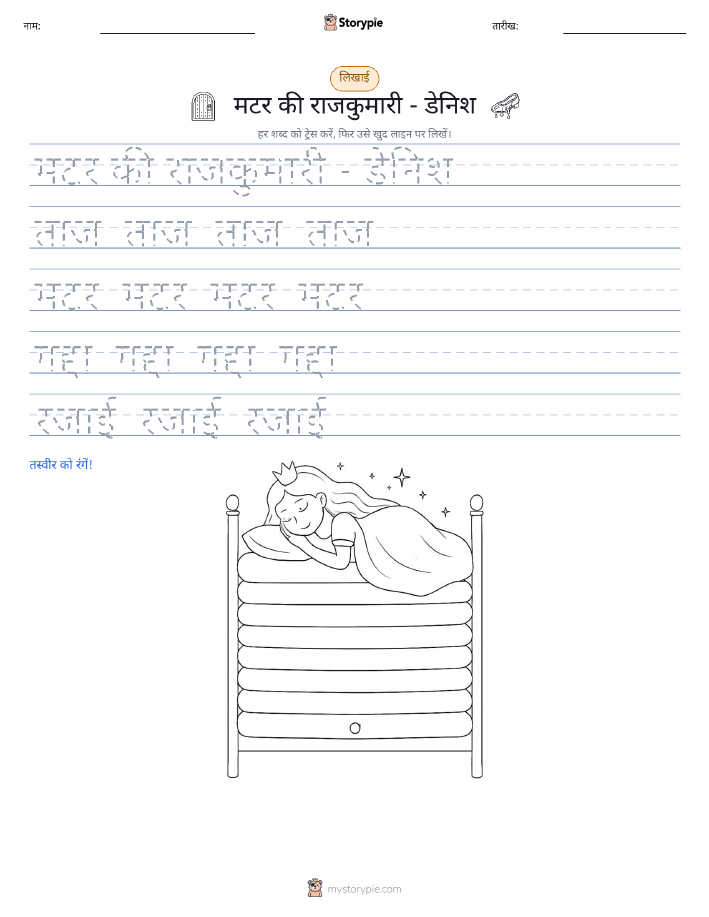 नाम:
Storypie
तारीख:
लिखाई
मटर की राजकुमारी - डेनिश
हर शब्द को ट्रेस करें, फिर उसे खुद लाइन पर लिखें।
मटर की राजकुमारी - डेनिश
ताज ताज ताज ताज
मटर मटर मटर मटर
गद्दा गद्दा गद्दा गद्दा
रजाई रजाई रजाई
तस्वीर को रंगें!
mystorypie.com